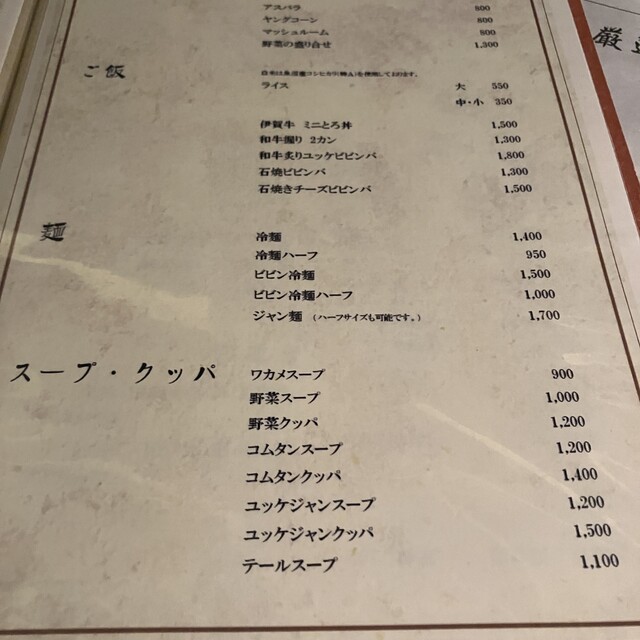 アスパラ 800
ヤングコーン 800
マッシュルーム 800
野菜の盛り合せ 1,300
ご飯
白米は魚沼産コシヒカリ(特A)を使用しております。
ライス 大 550
中・小 350
伊賀牛 ミニとろ丼 1,500
和牛握り 2カン 1,300
和牛炙りユッケビビンバ 1,800
石焼ビビンバ 1,300
石焼きチーズビビンバ 1,500
麺
冷麺 1,400
冷麺ハーフ 950
ビビン冷麺 1,500
ビビン冷麺ハーフ 1,000
ジャン麺 (ハーフサイズも可能です。) 1,700
スープ・クッパ
ワカメスープ 900
野菜スープ 1,000
野菜クッパ 1,200
コムタンスープ 1,200
コムタンクッパ 1,400
ユッケジャンスープ 1,200
ユッケジャンクッパ 1,500
テールスープ 1,100
厳